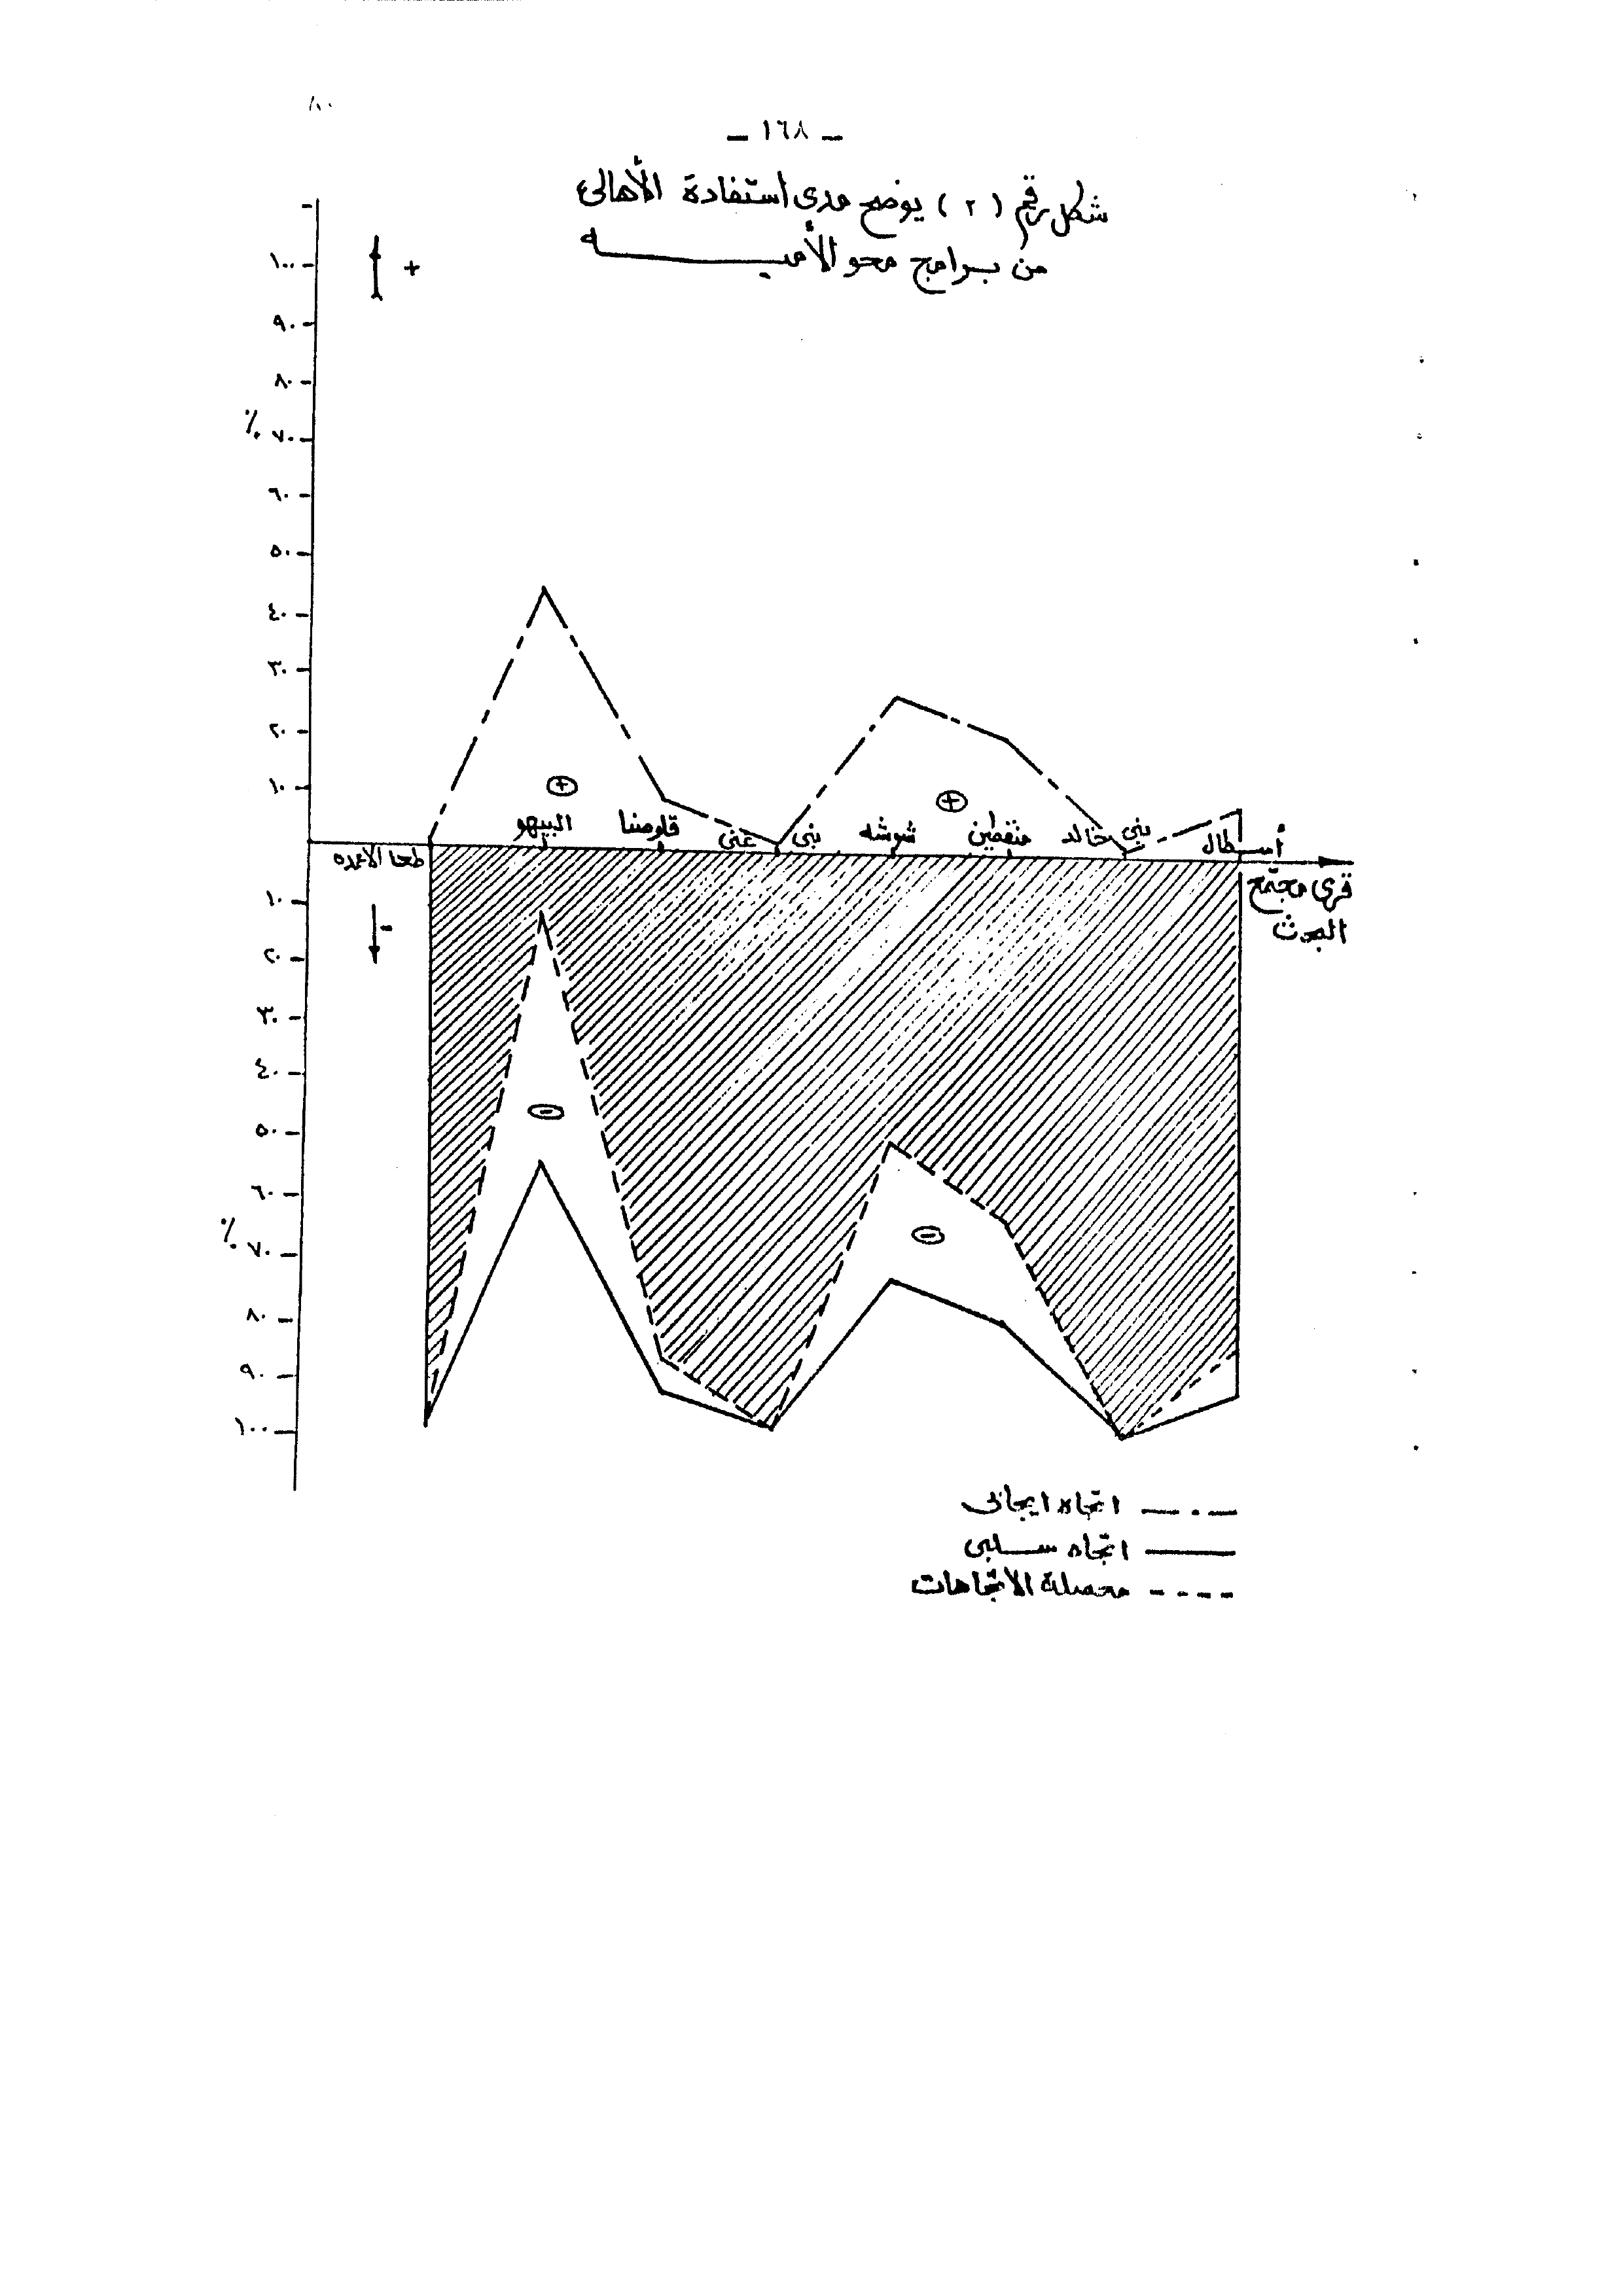 - ١٦٨ -
شكل رقم ( ٢ ) يوضح مدى استفادة الأهالى
من برامج محو الأميـــــه
+
١٠٠
٩٠
٨٠
٧٠ ٪
٦٠
٥٠
٤٠
٣٠
٢٠
١٠
+ +
طحا الاعمده البيهو قلوصنا بنى غنى شوشه منقطين بنى خالد أسطال
قرى مجتمع
البحث
-
١٠
٢٠
٣٠
٤٠
٥٠
٦٠
٧٠ ٪
٨٠
٩٠
١٠٠
- -
اتجاه ايجابى
اتجاه سلبى
محصلة الاتجاهات